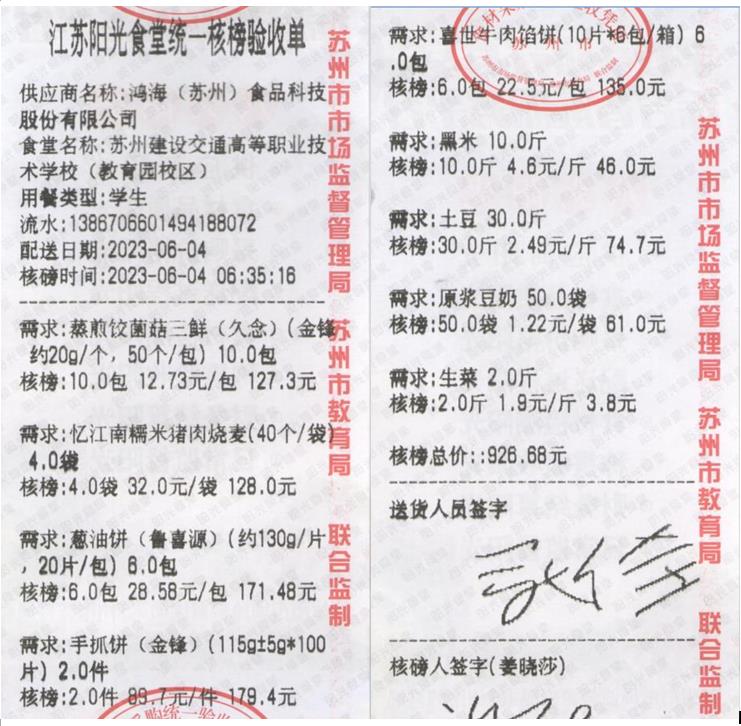 江苏阳光食堂统一核榜验收单
供应商名称:鸿海（苏州）食品科技
股份有限公司
食堂名称:苏州建设交通高等职业技
术学校（教育园校区）
用餐类型:学生
流水:1386706601494188072
配送日期:2023-06-04
核磅时间:2023-06-04 06:35:16
需求:蒸煎饺菌菇三鲜（久念）(金锋
约20g/个，50个/包) 10.0包
核榜:10.0包 12.73元/包 127.3元
需求:忆江南糯米猪肉烧麦(40个/袋)
4.0袋
核榜:4.0袋 32.0元/袋 128.0元
需求:葱油饼（鲁喜源）(约130g/片
，20片/包) 6.0包
核榜:6.0包 28.58元/包 171.48元
需求:手抓饼（金锋）(115g±5g*100
片) 2.0件
核榜:2.0件 89.7元/件 179.4元
苏州市市场监督管理局
苏州市教育局
联合监制
需求:喜世牛肉馅饼(10片*6包/箱) 6
.0包
核榜:6.0包 22.5元/包 135.0元
需求:黑米 10.0斤
核榜:10.0斤 4.6元/斤 46.0元
需求:土豆 30.0斤
核榜:30.0斤 2.49元/斤 74.7元
需求:原浆豆奶 50.0袋
核榜:50.0袋 1.22元/袋 61.0元
需求:生菜 2.0斤
核榜:2.0斤 1.9元/斤 3.8元
核榜总价::926.68元
送货人员签字
核磅人签字(姜晓莎)
苏州市市场监督管理局
苏州市教育局
联合监制